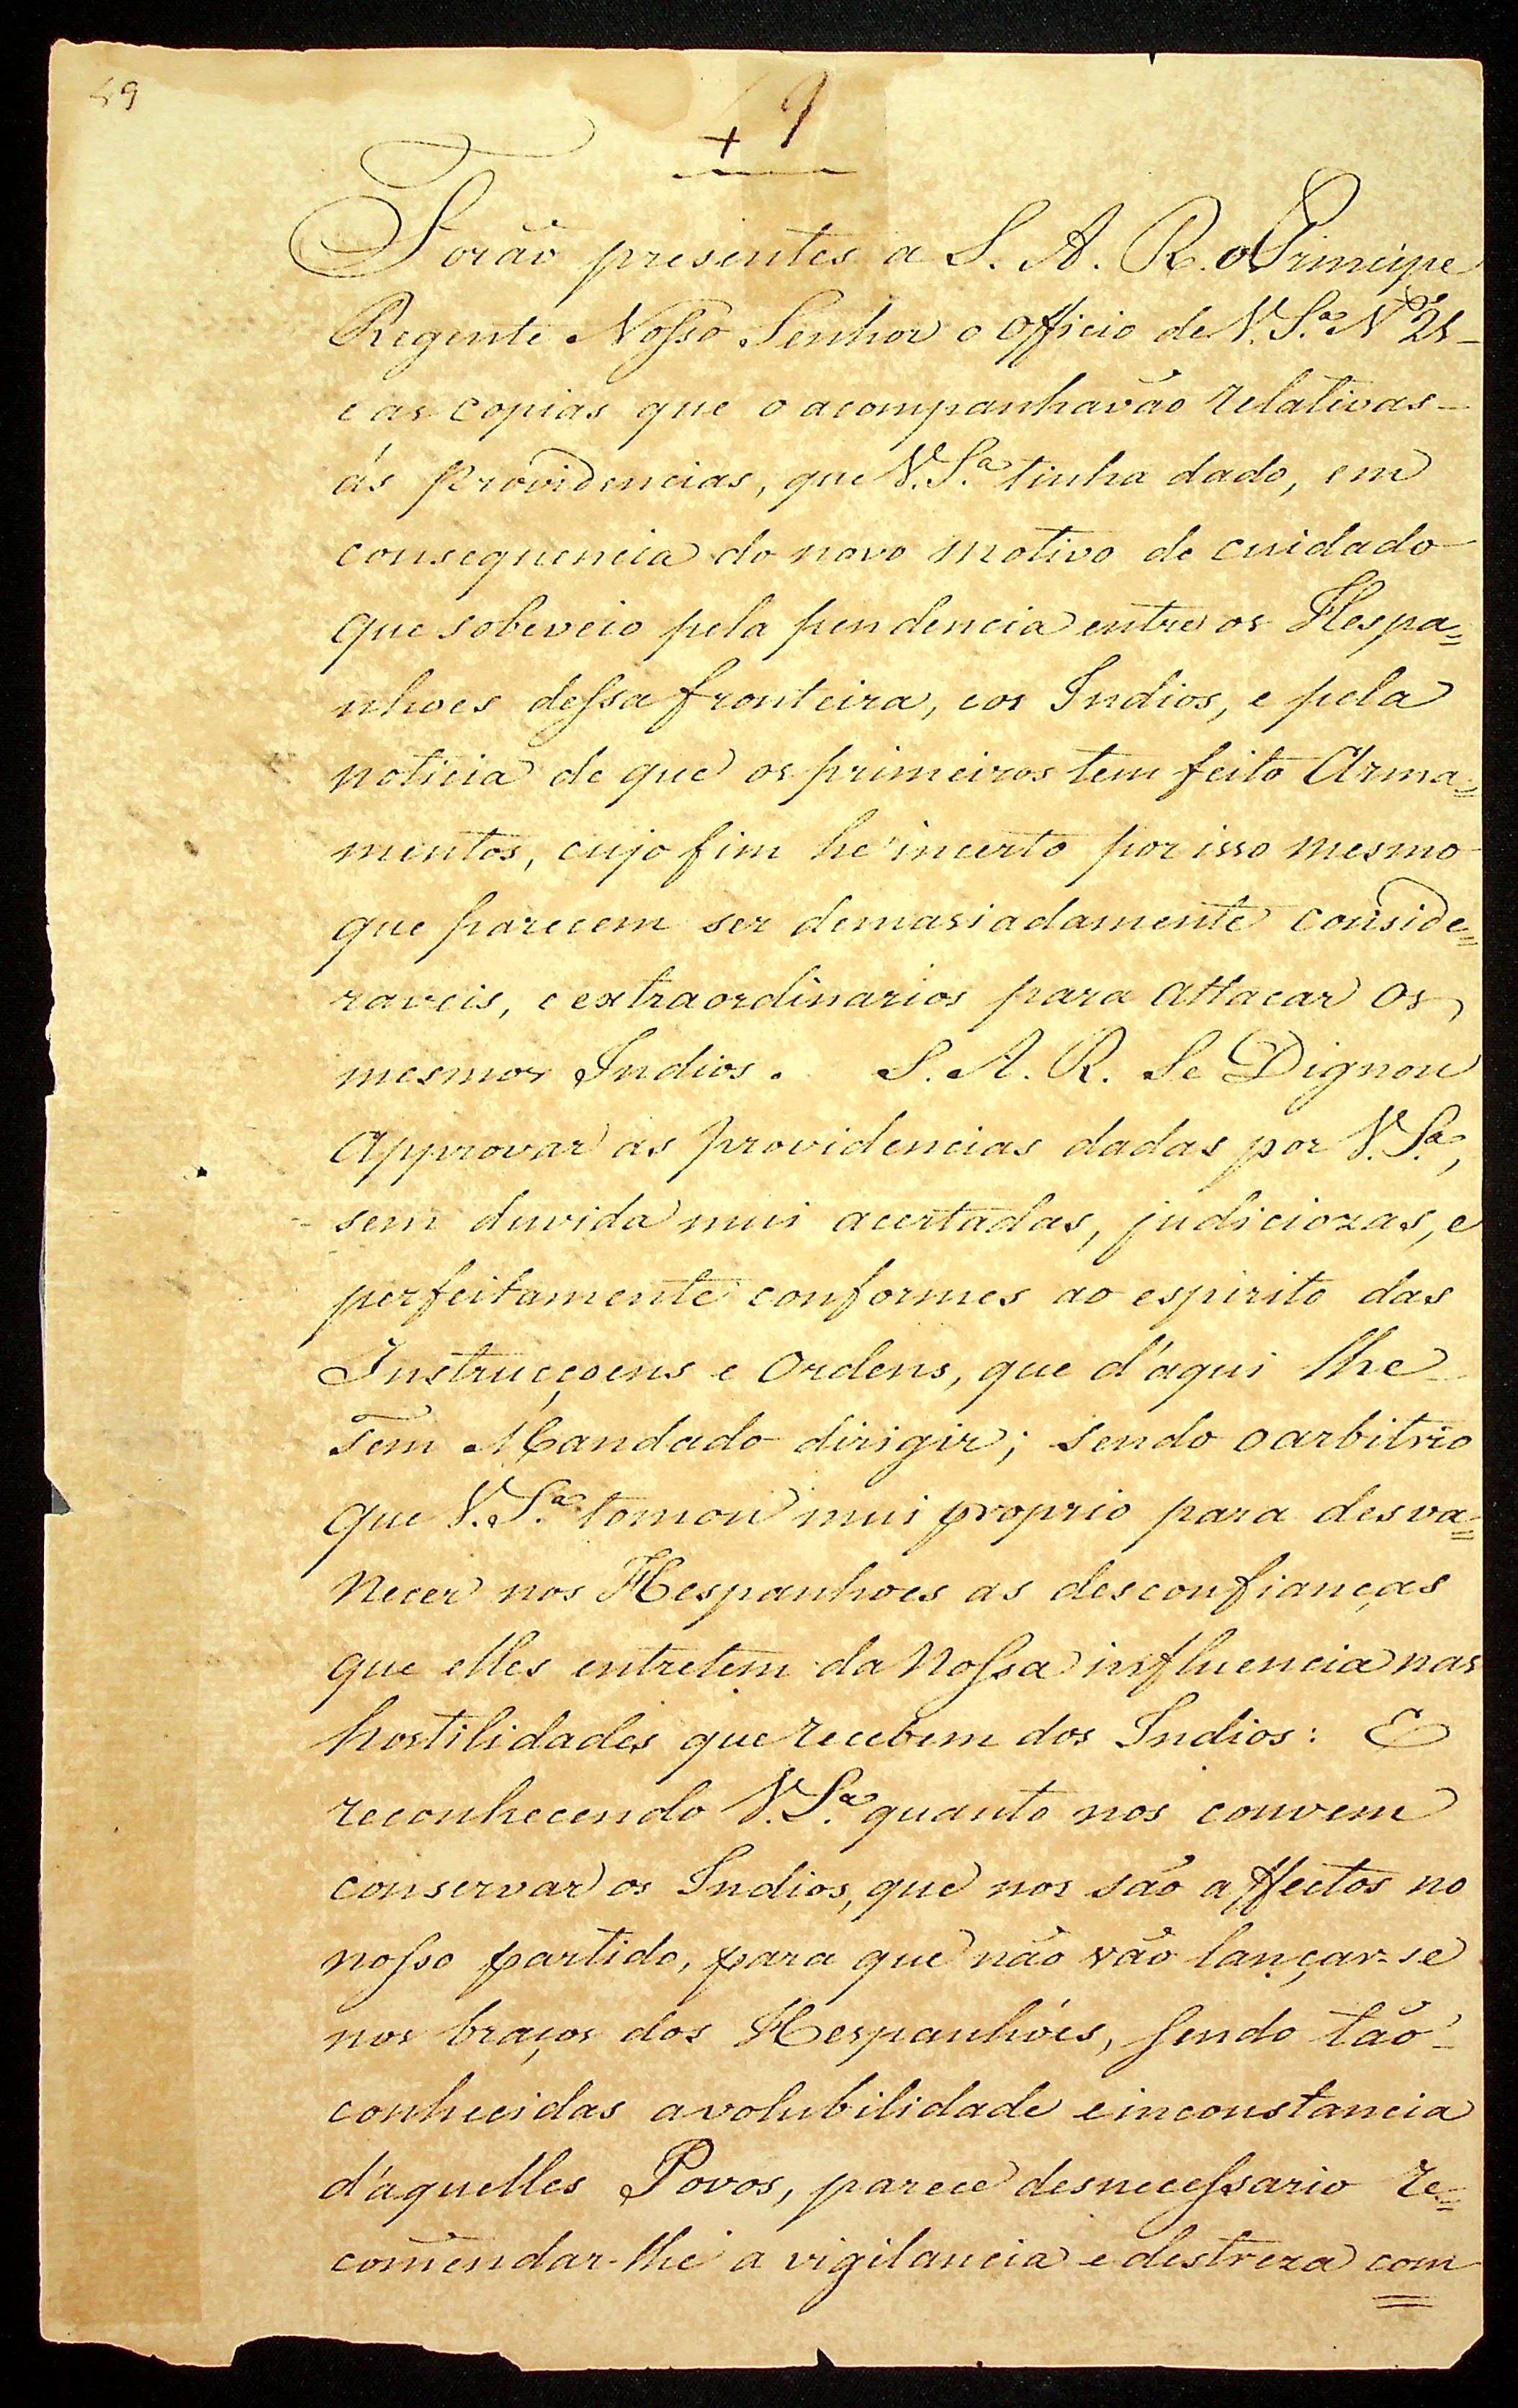 49
+ 9
Forão presentes a S. A. R. o Principe
Regente Nosso Senhor o officio de V. Sª. Nº 21
e as copias que o acompanhavão relativas
ás providencias, que V. Sª. tinha dado, em
consequencia do novo motivo de cuidado
que sobeveio pela pendencia entre os Hespa=
nhoes dessa fronteira, e os Indios, e pela
noticia de que os primeiros tem feito Arma=
mentos, cujo fim he incerto por isso mesmo
que parecem ser demasiadamente conside=
raveis, e extraordinarios para attacar os
mesmos Indios. S. A. R. Se Dignou
Approvar as providencias dadas por V. Sª.,
sem duvida mui acertadas, judiciozas, e
perfeitamente conformes ao espirito das
Instrucçoens e Ordens, que d'aqui lhe
tem Mandado dirigir; sendo o arbitrio
que V. Sª. tomou mui proprio para desva=
necer nos Hespanhoes as desconfianças
que elles entretem da Nossa influencia nas
hostilidades que recebem dos Indios: E
reconhecendo V. Sª. quanto nos convem
conservar os Indios, que nos são affectos no
nosso partido, para que não vão lançar-se
nos braços dos Hespanhóes, sendo tão
conhecidas a volubilidade e inconstancia
d'aquelles Povos, parece desnecessario re=
com̃endar-lhe a vigilancia e destreza com